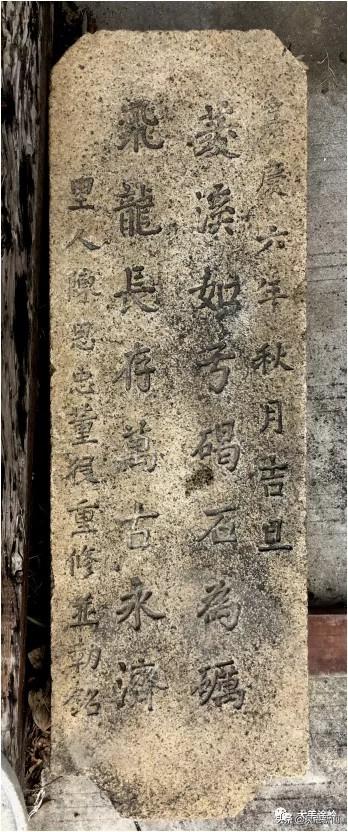 嘉慶六年秋月吉旦
菱溪如碣石為礪
飛龍長存萬古永濟
里人陳思忠董役重修並勒銘